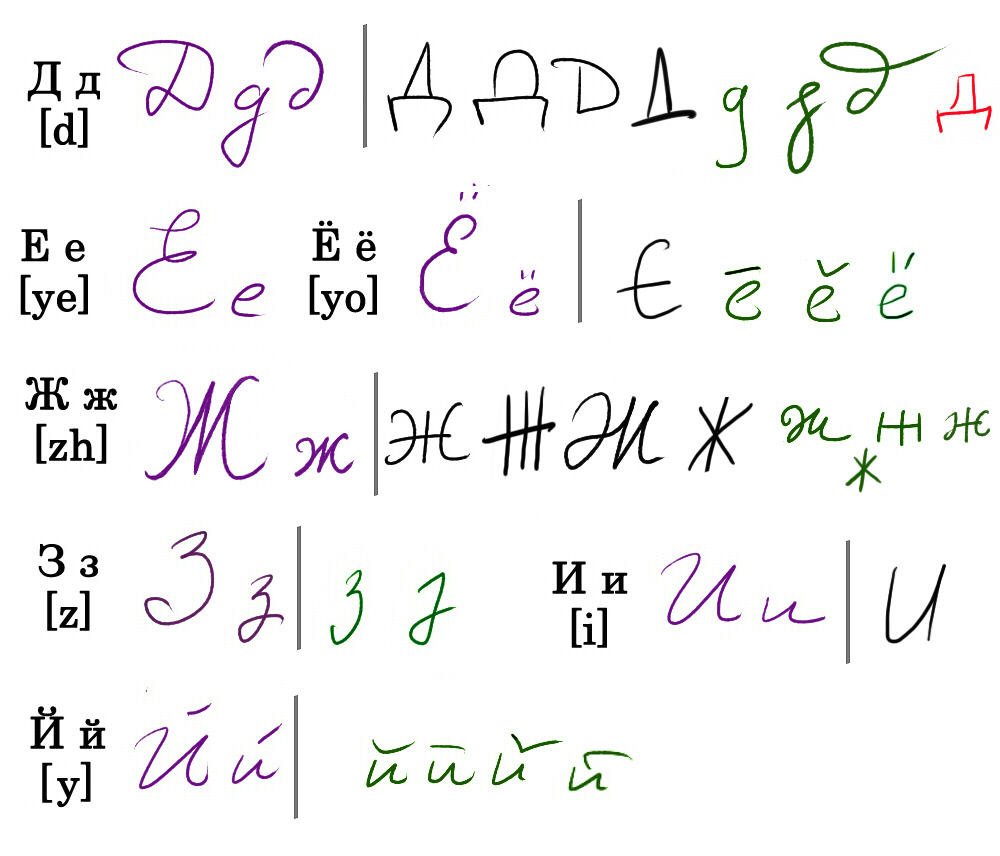 Д д Д д д Д Д Д Д д д д Д
[d]
Е е Е е Ё ё Ё ё Е ё ё ё
[ye] [yo]
Ж ж Ж ж Ж Ж Ж Ж ж ж ж
[zh] ж
З з З з з з И и И и И
[z] [i]
Й й Й й й й й й
[y]